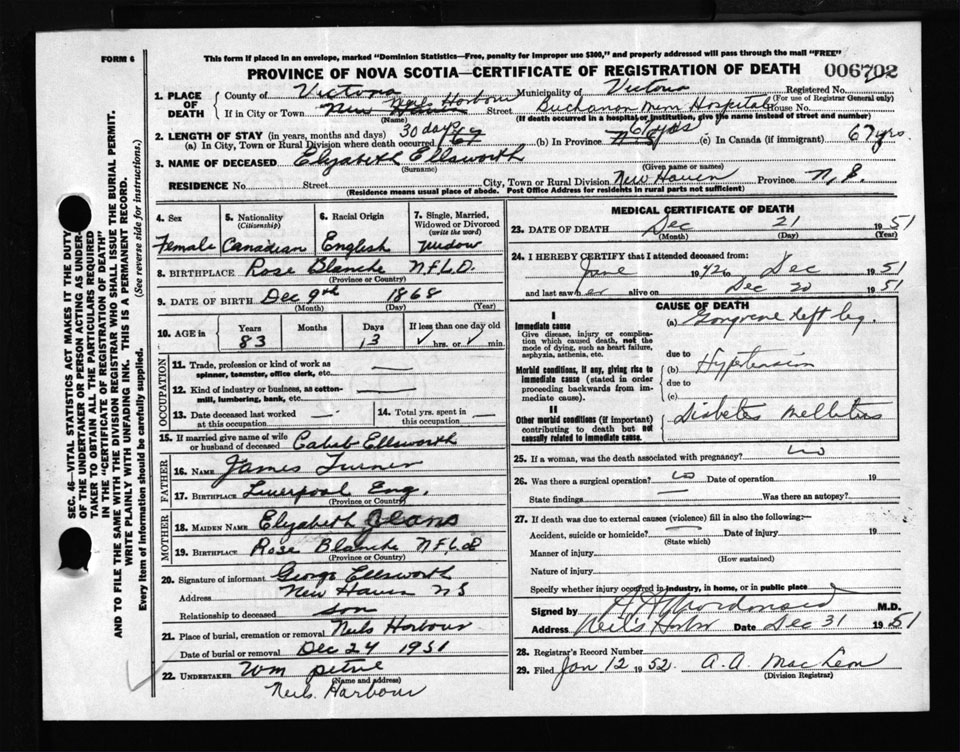 This form if placed in an envelope, marked "Dominion Statistics—Free, penalty for improper use $300," and properly addressed will pass through the mail "FREE"
FORM 6
PROVINCE OF NOVA SCOTIA—CERTIFICATE OF REGISTRATION OF DEATH 006702
1. PLACE OF DEATH { County of Victoria Municipality of Victoria Registered No.
(For use of Registrar General only)
If in City or Town Neils Harbour (Name) Street Buchanan Mem Hospital House No.
(If death occurred in a hospital or institution, give the name instead of street and number)
2. LENGTH OF STAY (in years, months and days) 30 days 67 yrs 67 yrs.
(a) In City, Town or Rural Division where death occurred (b) In Province (c) In Canada (if immigrant)
3. NAME OF DECEASED Elyzabeth Ellsworth
(Surname) (Given name or names)
RESIDENCE No. Street City, Town or Rural Division New Haven Province N.S.
(Residence means usual place of abode. Post Office Address for residents in rural parts not sufficient)
SEC. 46—VITAL STATISTICS ACT MAKES IT THE DUTY
OF THE UNDERTAKER OR PERSON ACTING AS UNDER-
TAKER TO OBTAIN ALL THE PARTICULARS REQUIRED
IN THE "CERTIFICATE OF REGISTRATION OF DEATH"
AND TO FILE THE SAME WITH THE DIVISION REGISTRAR WHO SHALL ISSUE THE BURIAL PERMIT.
WRITE PLAINLY WITH UNFADING INK. THIS IS A PERMANENT RECORD.
Every item of information should be carefully supplied. (See reverse side for instructions.)
4. Sex Female
5. Nationality (Citizenship) Canadian
6. Racial Origin English
7. Single, Married, Widowed or Divorced (write the word) Widow
8. BIRTHPLACE Rose Blanche NFLD.
(Province or Country)
9. DATE OF BIRTH Dec 9th 1868
(Month) (Day) (Year)
10. AGE in { Years 83 Months Days 13 If less than one day old ✓ hrs. or ✓ min.
OCCUPATION
11. Trade, profession or kind of work as spinner, teamster, office clerk, etc. —
12. Kind of industry or business, as cotton-mill, lumbering, bank, etc. —
13. Date deceased last worked at this occupation —
14. Total yrs. spent in this occupation —
15. If married give name of wife or husband of deceased Cabeb Ellsworth
FATHER
16. NAME James Turner
17. BIRTHPLACE Liverpool Eng.
(Province or Country)
MOTHER
18. MAIDEN NAME Elyzabeth Jeans
19. BIRTHPLACE Rose Blanche NFLd
(Province or Country)
20. Signature of informant George Ellsworth
Address New Haven NS
Relationship to deceased son
21. Place of burial, cremation or removal Neils Harbour
Date of burial or removal Dec 24 1951
22. UNDERTAKER Wm Petrie
(Name and address)
Neils Harbour
MEDICAL CERTIFICATE OF DEATH
23. DATE OF DEATH Dec 21 1951
(Month) (Day) (Year)
24. I HEREBY CERTIFY that I attended deceased from:
June 1942 to Dec 1951
and last saw her alive on Dec 20 1951
CAUSE OF DEATH
I
Immediate cause
Give disease, injury or complication which caused death, not the mode of dying, such as heart failure, asphyxia, asthenia, etc.
(a) Gangrene left leg.
due to
Morbid conditions, if any, giving rise to immediate cause (stated in order proceeding backwards from immediate cause).
(b) Hypertension
due to
(c)
II
Other morbid conditions (if important) contributing to death but not causally related to immediate cause.
Diabetes mellitus
25. If a woman, was the death associated with pregnancy? no
26. Was there a surgical operation? no Date of operation 19
State findings — Was there an autopsy?
27. If death was due to external causes (violence) fill in also the following:—
Accident, suicide or homicide? — Date of injury 19
(State which)
Manner of injury
(How sustained)
Nature of injury
Specify whether injury occurred in industry, in home, or in public place
Signed by M.D.
Address Neil's Harbor Date Dec 31 1951
28. Registrar's Record Number
29. Filed Jan 12 1952. A. A. MacLean
(Division Registrar)